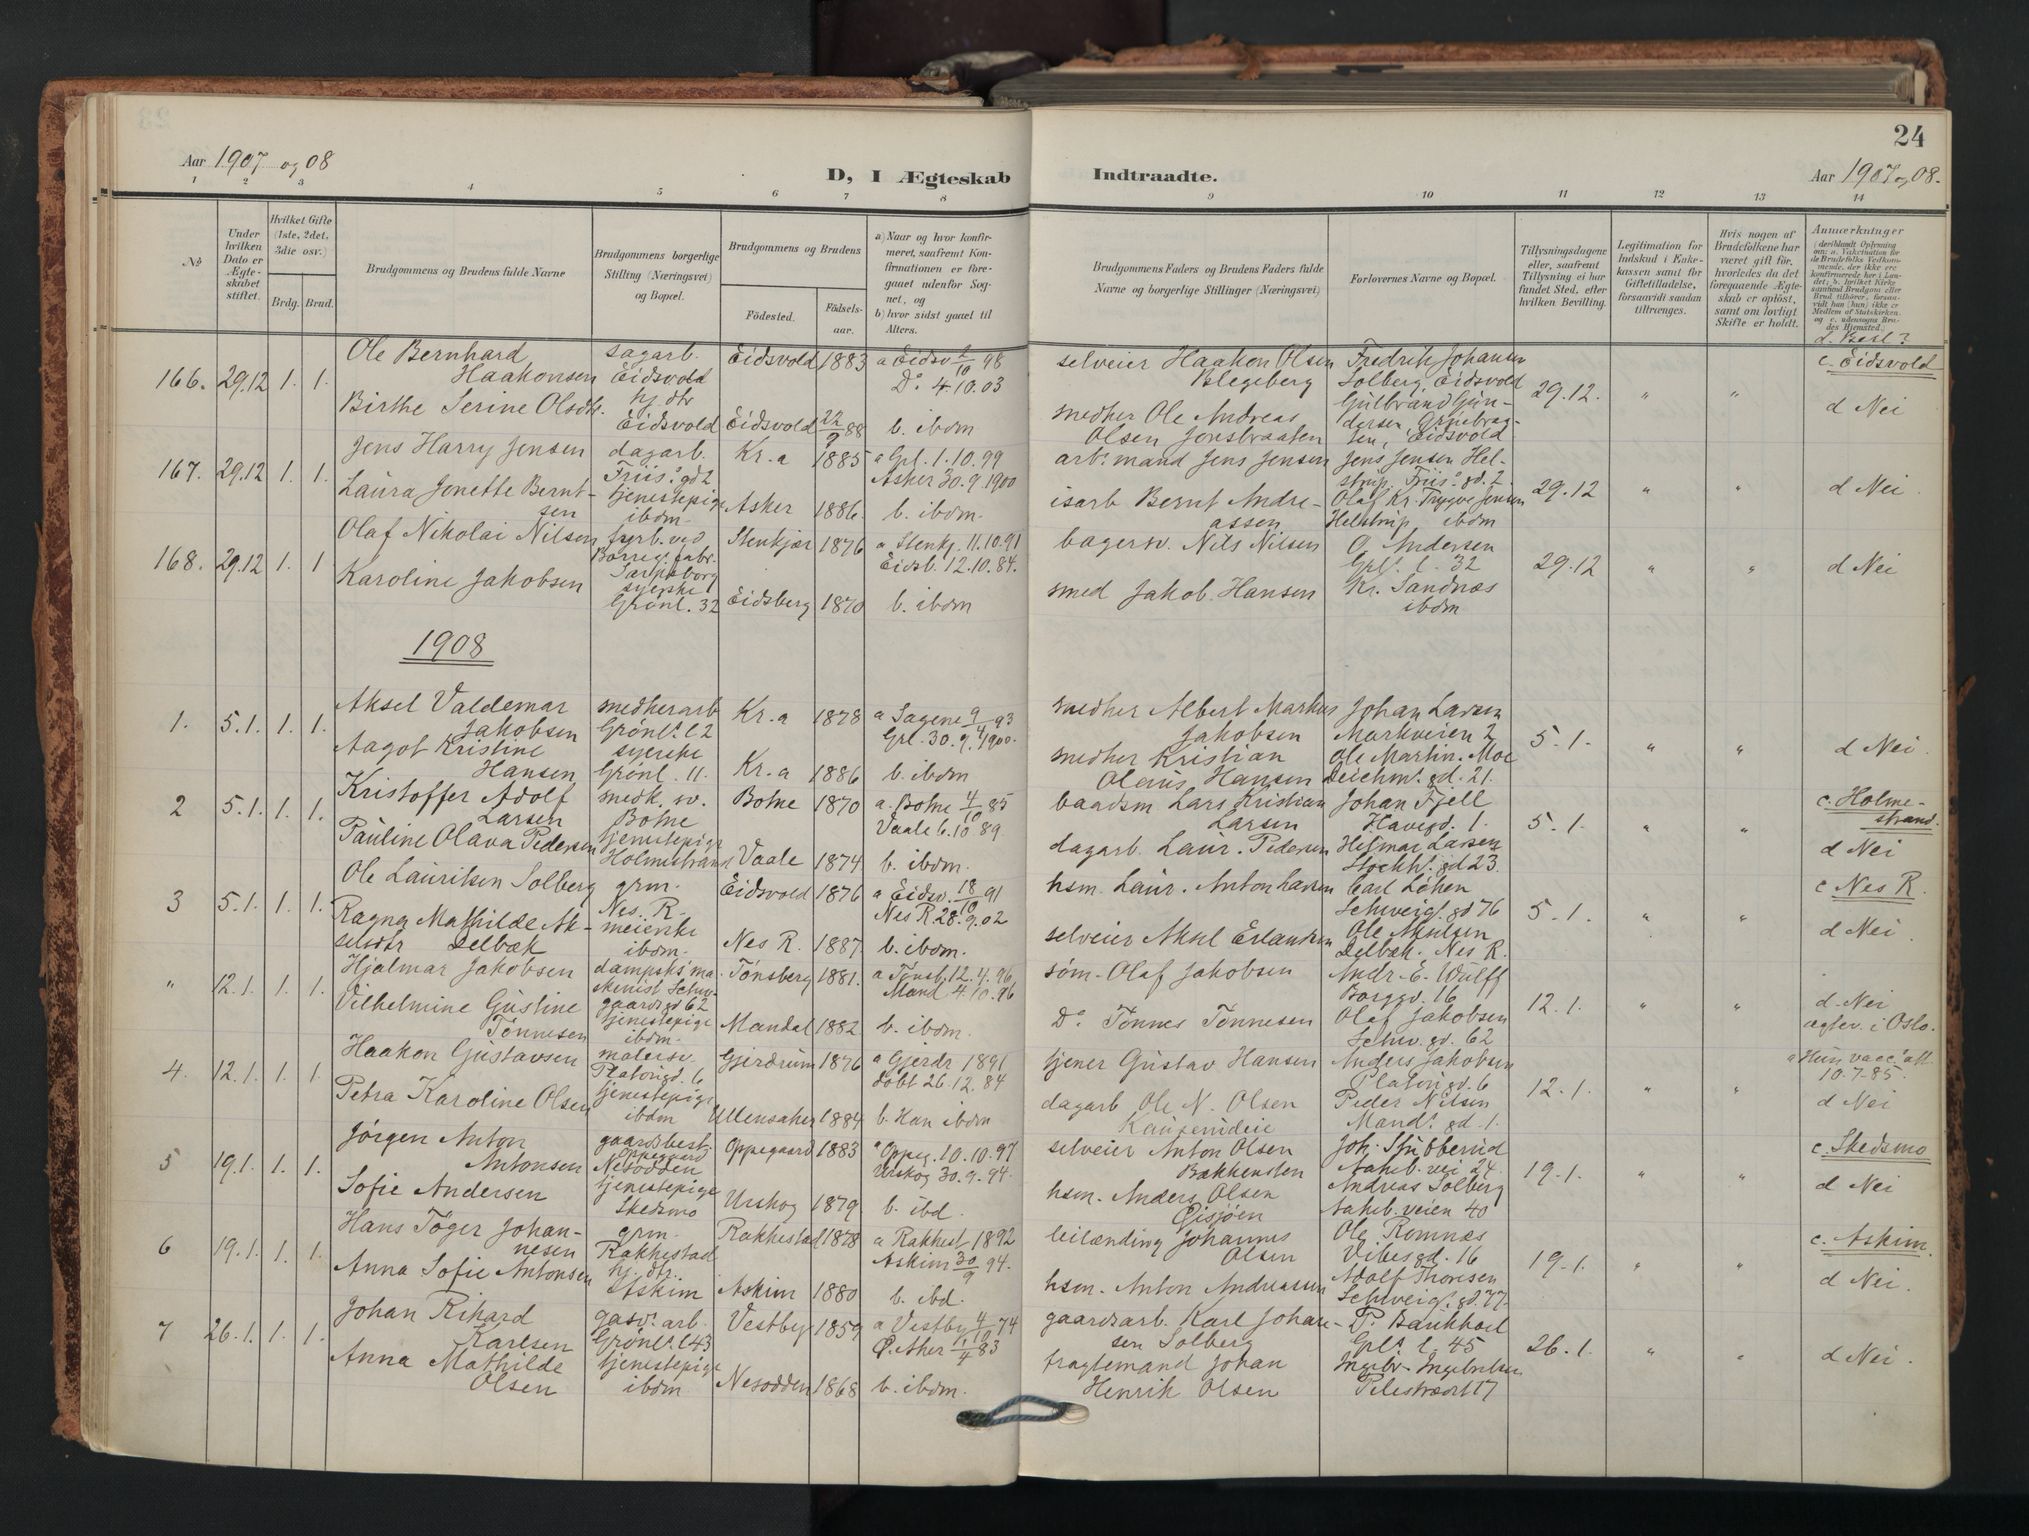 24
Aar 1907 og 08
D, I Ægteskab Indtraadte.
Aar 1907 og 08.
1 2 3 4 5 6 7 8 9 10 11 12 13 14
№
Under hvilken Dato er Ægteskabet stiftet.
Hvilket Gifte (1ste, 2det, 3die osv.)
Brdg. Brud.
Brudgommens og Brudens fulde Navne
Brudgommens borgerlige Stilling (Næringsvei) og Bopæl.
Brudgommens og Brudens
Fødested.
Fødselsaar.
a) Naar og hvor konfirmeret, saafremt Konfirmationen er foregaaet udenfor Sognet, og
b) hvor sidst gaaet til Alters.
Brudgommens Faders og Brudens Faders fulde Navne og borgerlige Stillinger (Næringsvei)
Forlovernes Navne og Bopæl.
Tillysningsdagene eller, saafremt Tillysning ei har fundet Sted, efter hvilken Bevilling.
Legitimation for Indskud i Enkekassen samt for Giftetilladelse, forsaavidt saadan tiltrænges.
Hvis nogen af Brudefolkene har været gift før, hvorledes da det foregaaende Ægteskab er opløst, samt om lovligt Skifte er holdt.
Anmærkninger
d. Besl?
166. 29.12 1. 1.
Ole Bernhard Haakonsen
sagarb. Eidsvold
Eidsvold 1883
a Eidsv 2/10 98
Do 4.10.03
selveier Haakon Olsen Blegeberg
Fredrik Johansen Solberg, Eidsvold
29.12. " "
c. Eidsvold
Birthe Serine Olsdtr.
hj. dtr Eidsvold
Eidsvold 22/9 88
b. ibdm
medher Ole Andreas Olsen Jonsbraaten
Gulbrand Gundersen, Eidsvold
d Nei
167. 29.12 1. 1.
Jens Harry Jensen
dagarb. Friis' gd 2
Kr.a 1885
a Grl. 1.10.99
Asker 30.9.1900
arb: mand Jens Jensen
Jens Jensen Helstrup, Friis' gd. 2
29.12 " "
Laura Jonette Berntsen
tjenestepige ibdm.
Asker 1886.
b. ibdm.
isarb Bernt Andreassen
Olaf Kr. Trygve Jensen Helstrup, ibdm
d Nei.
168. 29.12 1. 1.
Olaf Nikolai Nilsen
fyrb. ved Borreg. fabr. Sarpsborg
Stenkjær 1876
a Stenkj. 11.10.91
Eidsb. 12.10.84.
bagersv. Nils Nilsen
O. Andersen Grl. l. 32
29.12 " "
d Nei
Karoline Jakobsen
syerske Grønl. 32
Eidsberg 1870
b. ibdm
smed Jakob Hansen
Kr. Sandnæs ibdm
1908
1. 5.1. 1. 1.
Aksel Valdemar Jakobsen
medherarb Grønl. l 2
Kr.a 1878
a Sagene 9/4 93
Grl. 30.9.1900.
medher Albert Markus Jakobsen
Johan Larsen Markveien 2
5.1. " "
Aagot Kristine Hansen
syerske Grønl. 11.
Kr.a 1886
b. ibdm
medher Kristian Olaus Hansen
Ole Martin Moe Deichm. gd. 21.
d Nei.
2 5.1. 1. 1.
Kristoffer Adolf Larsen
medk. sv. Botne
Botne 1870
a. Botne 4/10 85
Vaale 6.10 89.
baadsm Lars Kristian Larsen
Johan Fjell Havegd. 1.
5.1. " "
c. Holmestrand.
Pauline Olava Pedersen
tjenestepige Holmestrand
Vaale 1874
b. ibdm.
dagarb. Laur. Pedersen
Hjelmar Larsen Stockh. gd 23.
d Nei
3 5.1. 1. 1.
Ole Lauritsen Solberg
grm. Nes. R.
Eidsvold 1876
a Eidsv. 18/10 91
Nes R 28.9.02
hsm. Laur. Anton Larsen
Carl Løken Schweig. gd 76
5.1. " "
c Nes R.
Ragna Mathilde Akselsdtr Delbæk
meierske ibdm.
Nes R. 1887.
b. ibdm.
selveier Aksel Erlandsen
Ole Akselsen Delbæk. Nes R.
d Nei.
" 12.1. 1. 1.
Hjalmar Jakobsen
dampsk's maskinist Schw. gaards gd 62
Tønsberg 1881.
a Tønsb. 12.4.96
Mand 4.10.96
søm. Olaf Jakobsen
Andr. E. Wulff Borggd. 16
12.1. " "
Vilhelmine Gustine Tønnesen
tjenestepige ibdm.
Mandal 1882
b. ibdm.
Do Tønnes Tønnesen
Olaf Jakobsen Schw. gd. 62
d. Nei
ægtev. i Oslo.
4. 12.1. 1. 1.
Haakon Gustavsen
malersv. Platousgd. 6
Gjerdrum 1876
a Gjerdr 1891
døbt 26.12.84
tjener Gustav Hansen
Anders Jakobsen Platousgd. 6
12.1. " "
a Hun vacc. att. 10.7.85.
Petra Karoline Olsen
tjenestepige ibdm
Ullensaker 1884
b. Han ibdm
dagarb Ole N. Olsen
Peder Nilsen Mand. gd. 1.
d Nei
5 19.1. 1. 1.
Jørgen Anton Antonsen
gaardsbest. Oppegaard Nesodden
Oppegaard 1883
a Oppeg. 10.10.97
Urskog 30.9.94.
selveier Anton Olsen Bakkensten
Joh. Stubberud Aakeb. vei 24.
19.1. " "
c. Skedsmo
Sofie Andersen
tjenestepige Skedsmo
Urskog 1879
b. ibd.
hsm. Anders Olsen
Andreas Solberg Aakeb. veien 40
d Nei
6 19.1. 1. 1.
Hans Tøger Johannesen
grm. Rakkestad
Rakkestad 1878
a Rakkest. 1892
Askim 30/9 94.
leilænding Johannes Olsen
Ole Romnæs Vibesgd. 16
19.1. " "
c. Askim.
Anna Sofie Antonsen
hj. dtr. Askim
Askim 1880
b. ibd.
hsm. Anton Andreassen
Adolf Thoresen Schweig. gd. 77.
d Nei.
7 26.1. 1. 1.
Johan Rikard Karlsen
gasv. arb. Grønl. l 43
Vestby 1859
a Vestby 4/10 74
Ø. Aker 1/4 83
gaardsarb. Karl Johansen Solberg
P. Bankhoel Grl. l. 45
26.1. " "
Anna Mathilde Olsen
tjenestepige ibdm.
Nesodden 1868
b. ibdm.
fragtemand Johan Henrik Olsen
Ingebr. Ingebretsen Pilestrædet 17
d Nei.